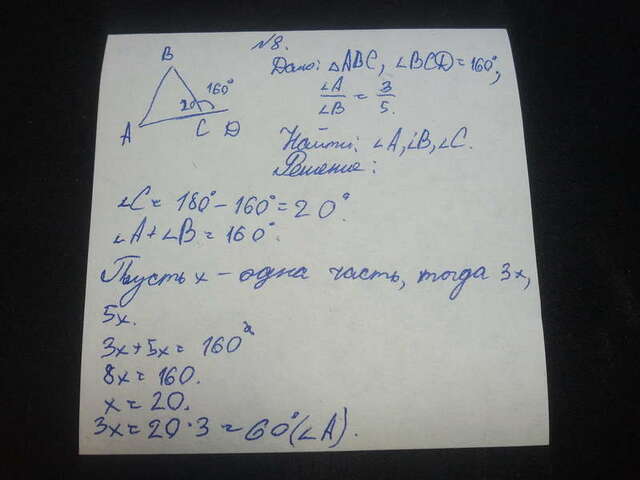 №8.
B
160°
20
A
C
D
Дано: △ABC, ∠BCD=160°,
∠A/∠B = 3/5.
Найти: ∠A, ∠B, ∠C.
Решение:
∠C = 180° - 160° = 20°.
∠A + ∠B = 160°.
Пусть x - одна часть, тогда 3x,
5x.
3x+5x = 160°
8x = 160.
x = 20.
3x = 20·3 = 60° (∠A).